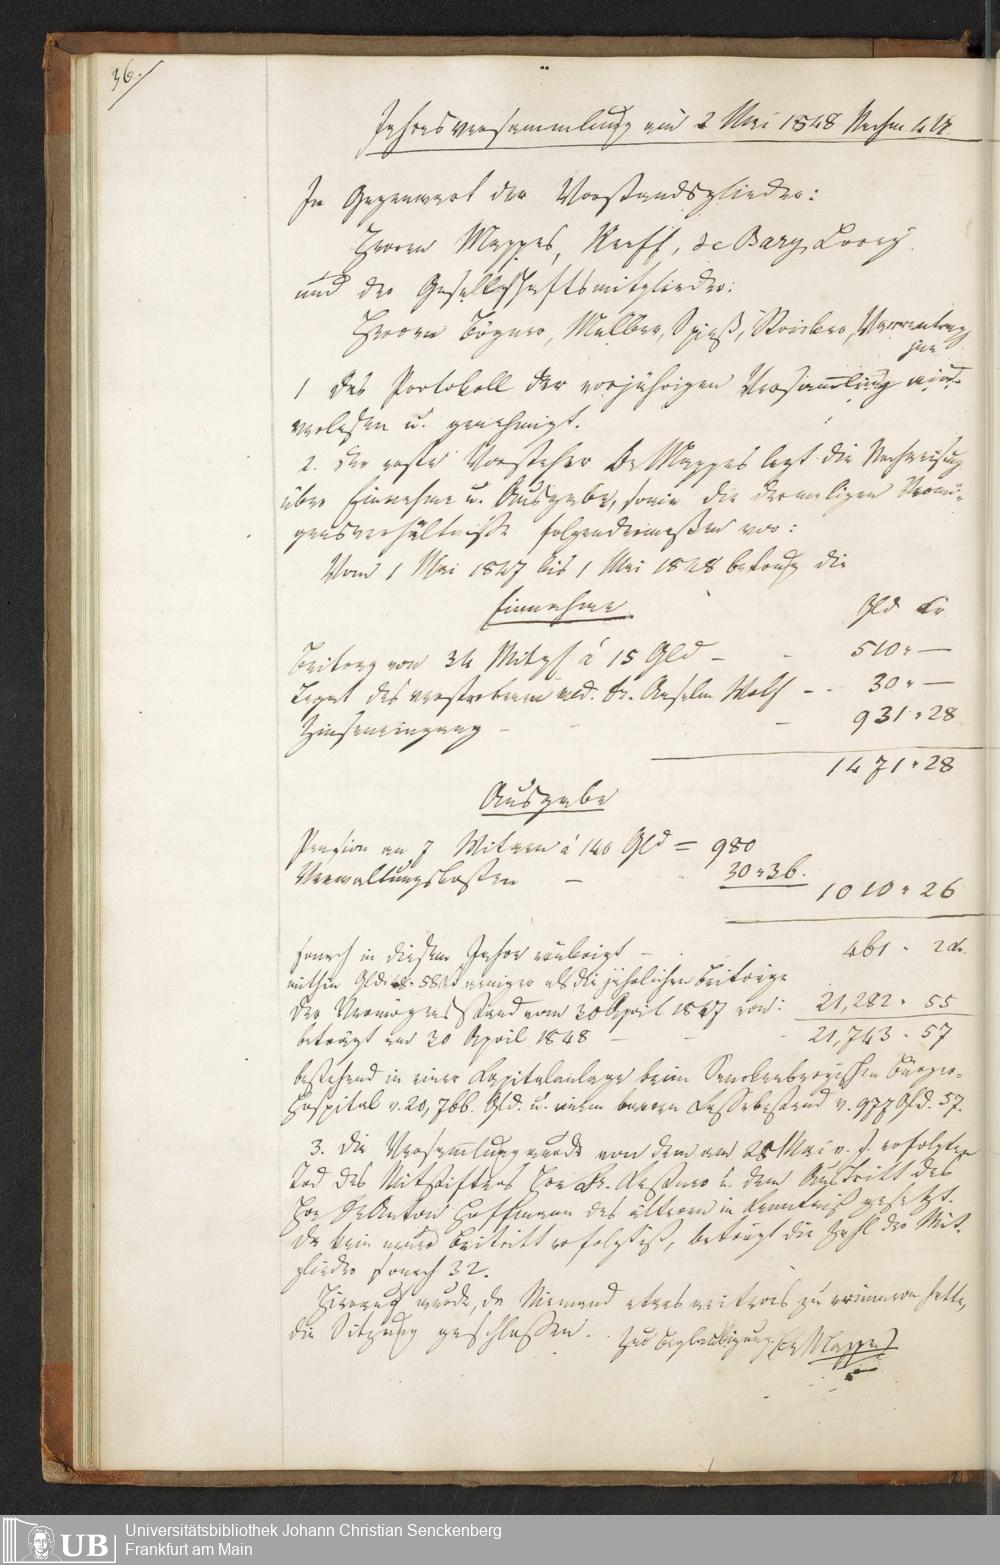 36.
Jahresversammlung am 2 Mai 1848 Nachm 4 U
In Gegenwart der Vorstandsglieder:
Herren Mappes, Neeff, de Bary, Lorey.
und der Gesellschaftsmitglieder:
Herren Bögner, Melber, Spieß, Stricker, Varrentrapp
jun.
1 das Protokoll der vorjährigen Versammlung wird
verlesen u. genehmigt.
2. der erste Vorsteher Dr Mappes legt die Nachweisung
über Einnahme u. Ausgabe, sowie die dermaligen Vermö-
gensverhältnisse folgendermaßen vor:
Vom 1 Mai 1847 bis 1 Mai 1848 betrug die
Einnahme Gld Kr
Beitrag von 34 Mitgl à 15 Gld – - 510 " —
Legat des verstorbenen med. Dr. Anselm Wolf - - 30 " —
Zinseneingang - - 931 " 28
1471 " 28
Ausgabe
Pension an 7 Witwen à 140 Gld = 980
Verwaltungskosten – 30 " 36.
1010 " 26
sonach in diesem Jahre erübrigt – 461 " 2 Kr.
mithin Gld. 48. 58 Kr weniger als die jährlichen Beiträge
Der Vermögensstand vom 30 April 1847 von: 21,282 " 55
beträgt am 30 April 1848 – - 21,743 - 57
bestehend in einer Kapitalanlage beim Senckenbergischen Bürger-
hospital v. 20,766. Gld. u. einem baaren Kassebestand v. 977 Gld. 57.
3. Die Versammlung wurde von dem am 28 Mai v. J. erfolgten
Tod des Mitstifters Hrn Dr. Kestner u. dem Austritt des
Hrn Dr Anton Hoffmann des älteren in Kenntniß gesetzt.
Da kein neuer Beitritt erfolgt ist, beträgt die Zahl der Mit-
glieder sonach 32.
Hierauf wurde, da Niemand etwas weiteres zu erinnern hatte,
die Sitzung geschlossen. Zur Beglaubigung: Dr Mappes
UB
Universitätsbibliothek Johann Christian Senckenberg
Frankfurt am Main